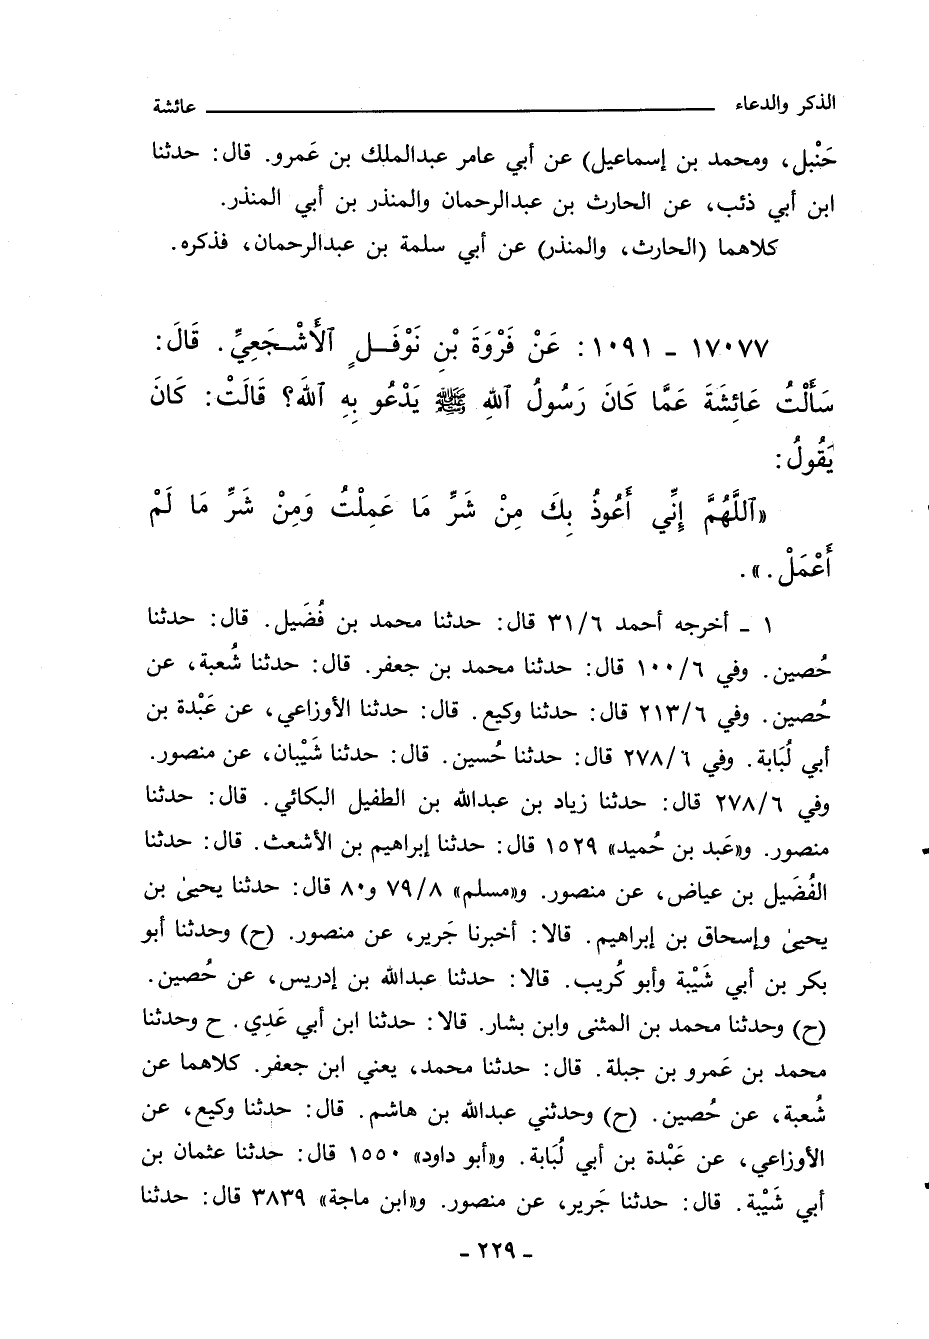 الذكر والدعاء عائشة
حَنْبل، ومحمد بن إسماعيل) عن أبي عامر عبدالملك بن عَمرو. قال: حدثنا
ابن أبي ذئب، عن الحارث بن عبدالرحمان والمنذر بن أبي المنذر.
كلاهما (الحارث، والمنذر) عن أبي سلمة بن عبدالرحمان، فذكره.
١٧٠٧٧ - ١٠٩١: عَنْ فَرْوَةَ بْنِ نَوْفَلٍ ٱلْأَشْجَعِيِّ. قَالَ:
سَأَلْتُ عَائِشَةَ عَمَّا كَانَ رَسُولُ ٱللهِ ﷺ يَدْعُو بِهِ ٱللهَ؟ قَالَتْ: كَانَ
يَقُولُ:
«ٱللَّهُمَّ إِنِّي أَعُوذُ بِكَ مِنْ شَرِّ مَا عَمِلْتُ وَمِنْ شَرِّ مَا لَمْ
أَعْمَلْ.».
١ - أخرجه أحمد ٣١/٦ قال: حدثنا محمد بن فُضَيل. قال: حدثنا
حُصين. وفي ١٠٠/٦ قال: حدثنا محمد بن جعفر. قال: حدثنا شُعبة، عن
حُصين. وفي ٢١٣/٦ قال: حدثنا وكيع. قال: حدثنا الأوزاعي، عن عَبْدة بن
أبي لُبَابة. وفي ٢٧٨/٦ قال: حدثنا حُسين. قال: حدثنا شَيْبان، عن منصور.
وفي ٢٧٨/٦ قال: حدثنا زياد بن عبدالله بن الطفيل البكائي. قال: حدثنا
منصور. و«عَبد بن حُميد» ١٥٢٩ قال: حدثنا إبراهيم بن الأشعث. قال: حدثنا
الفُضَيل بن عياض، عن منصور. و«مسلم» ٧٩/٨ و٨٠ قال: حدثنا يحيىٰ بن
يحيىٰ وإسحاق بن إبراهيم. قالا: أخبرنا جَرير، عن منصور. (ح) وحدثنا أبو
بكر بن أبي شَيْبة وأبو كُريب. قالا: حدثنا عبدالله بن إدريس، عن حُصين.
(ح) وحدثنا محمد بن المثنى وابن بشار. قالا: حدثنا ابن أبي عَدِي. ح وحدثنا
محمد بن عَمرو بن جبلة. قال: حدثنا محمد، يعني ابن جعفر. كلاهما عن
شُعبة، عن حُصين. (ح) وحدثني عبدالله بن هاشم. قال: حدثنا وكيع، عن
الأوزاعي، عن عَبْدة بن أبي لُبَابة. و«أبو داود» ١٥٥٠ قال: حدثنا عثمان بن
أبي شَيْبة. قال: حدثنا جَرير، عن منصور. و«ابن ماجة» ٣٨٣٩ قال: حدثنا
- ٢٢٩ -